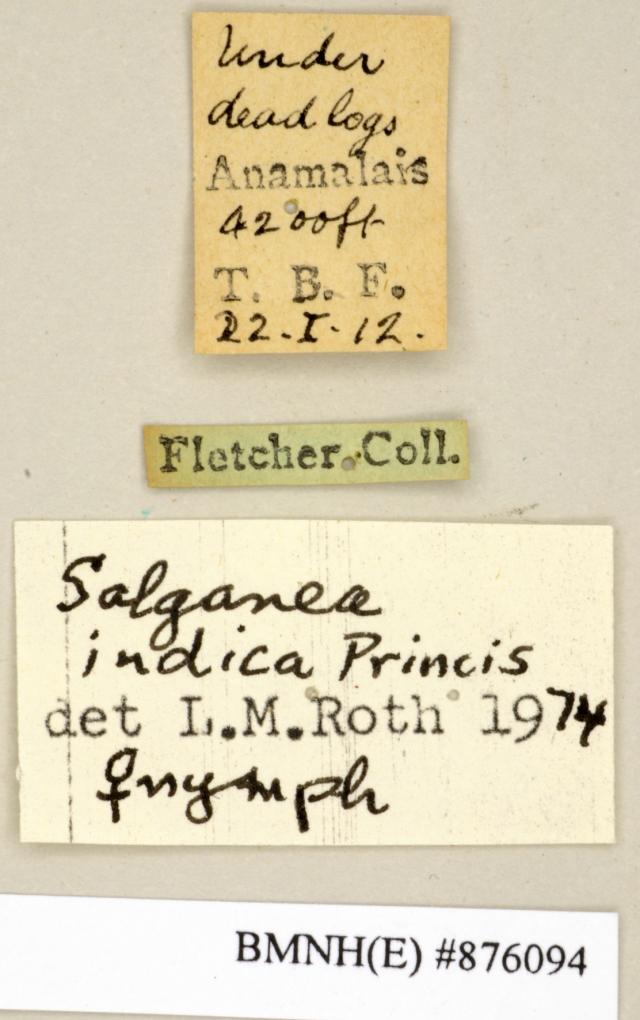 Under
dead logs
Anamalais
4200ft
T. B. F.
22.I.12.
Fletcher Coll.
Salganea
indica Princis
det L.M.Roth 1974
♀ nymph
BMNH(E) #876094